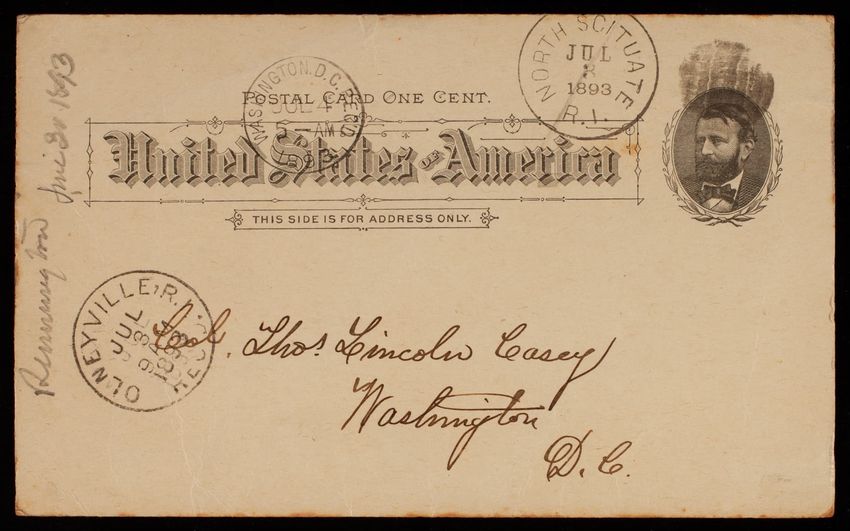 NORTH SCITUATE
JUL
3
1893
R.I.
WASHINGTON. D.C. REC'D
JUL 4
5 - AM
1893
POSTAL CARD ONE CENT.
United States of America
THIS SIDE IS FOR ADDRESS ONLY.
OLNEYVILLE, R.I. REC'D.
JUL 3
1893
Col. Thos Lincoln Casey
Washington
D.C.
Remington June 30 1893